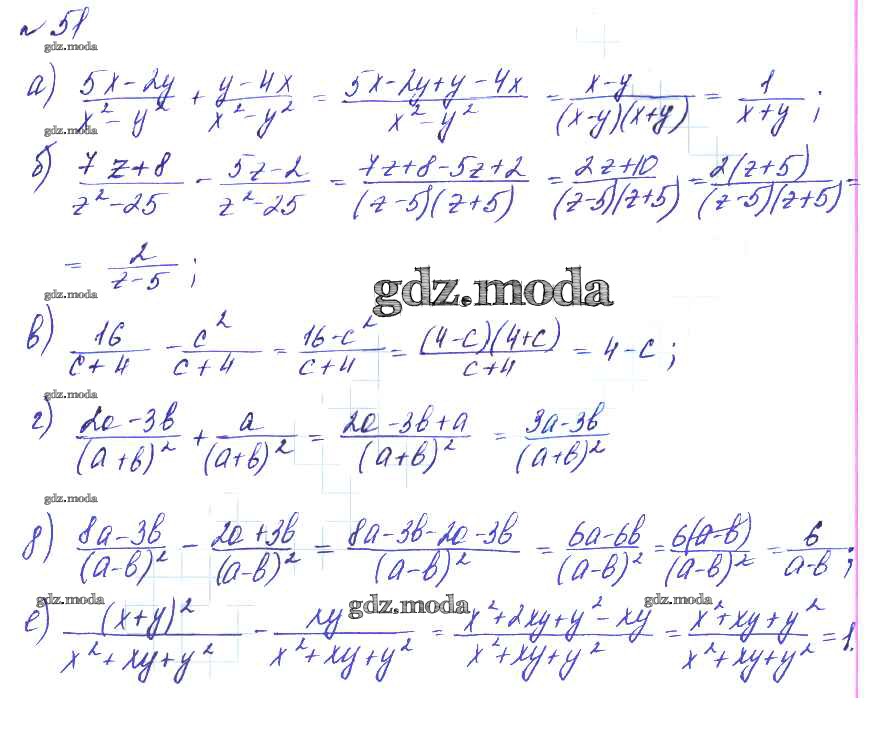 № 51
gdz.moda
а) (5x-2y)/(x²-y²) + (y-4x)/(x²-y²) = (5x-2y+y-4x)/(x²-y²) = (x-y)/((x-y)(x+y)) = 1/(x+y);
gdz.moda
б) (7z+8)/(z²-25) - (5z-2)/(z²-25) = (7z+8-5z+2)/((z-5)(z+5)) = (2z+10)/((z-5)(z+5)) = 2(z+5)/((z-5)(z+5)) =
= 2/(z-5);
gdz.moda
gdz.moda
в) 16/(c+4) - c²/(c+4) = (16-c²)/(c+4) = (4-c)(4+c)/(c+4) = 4-c;
gdz.moda
г) (2a-3b)/(a+b)² + a/(a+b)² = (2a-3b+a)/(a+b)² = (3a-3b)/(a+b)²
gdz.moda
д) (8a-3b)/(a-b)² - (2a+3b)/(a-b)² = (8a-3b-2a-3b)/(a-b)² = (6a-6b)/(a-b)² = 6(a-b)/(a-b)² = 6/(a-b);
gdz.moda gdz.moda gdz.moda
е) (x+y)²/(x²+xy+y²) - xy/(x²+xy+y²) = (x²+2xy+y²-xy)/(x²+xy+y²) = (x²+xy+y²)/(x²+xy+y²) = 1.